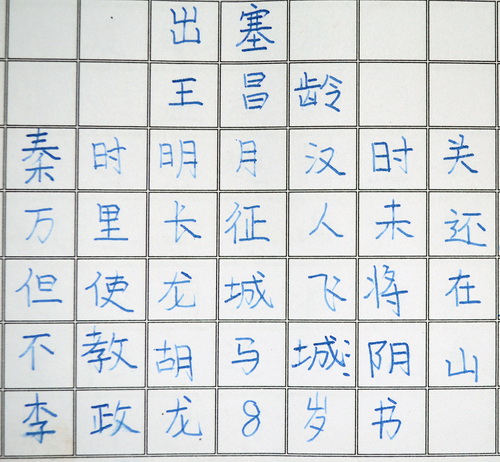 出塞
王昌龄
秦时明月汉时关
万里长征人未还
但使龙城飞将在
不教胡马城阴山
李政龙8岁书